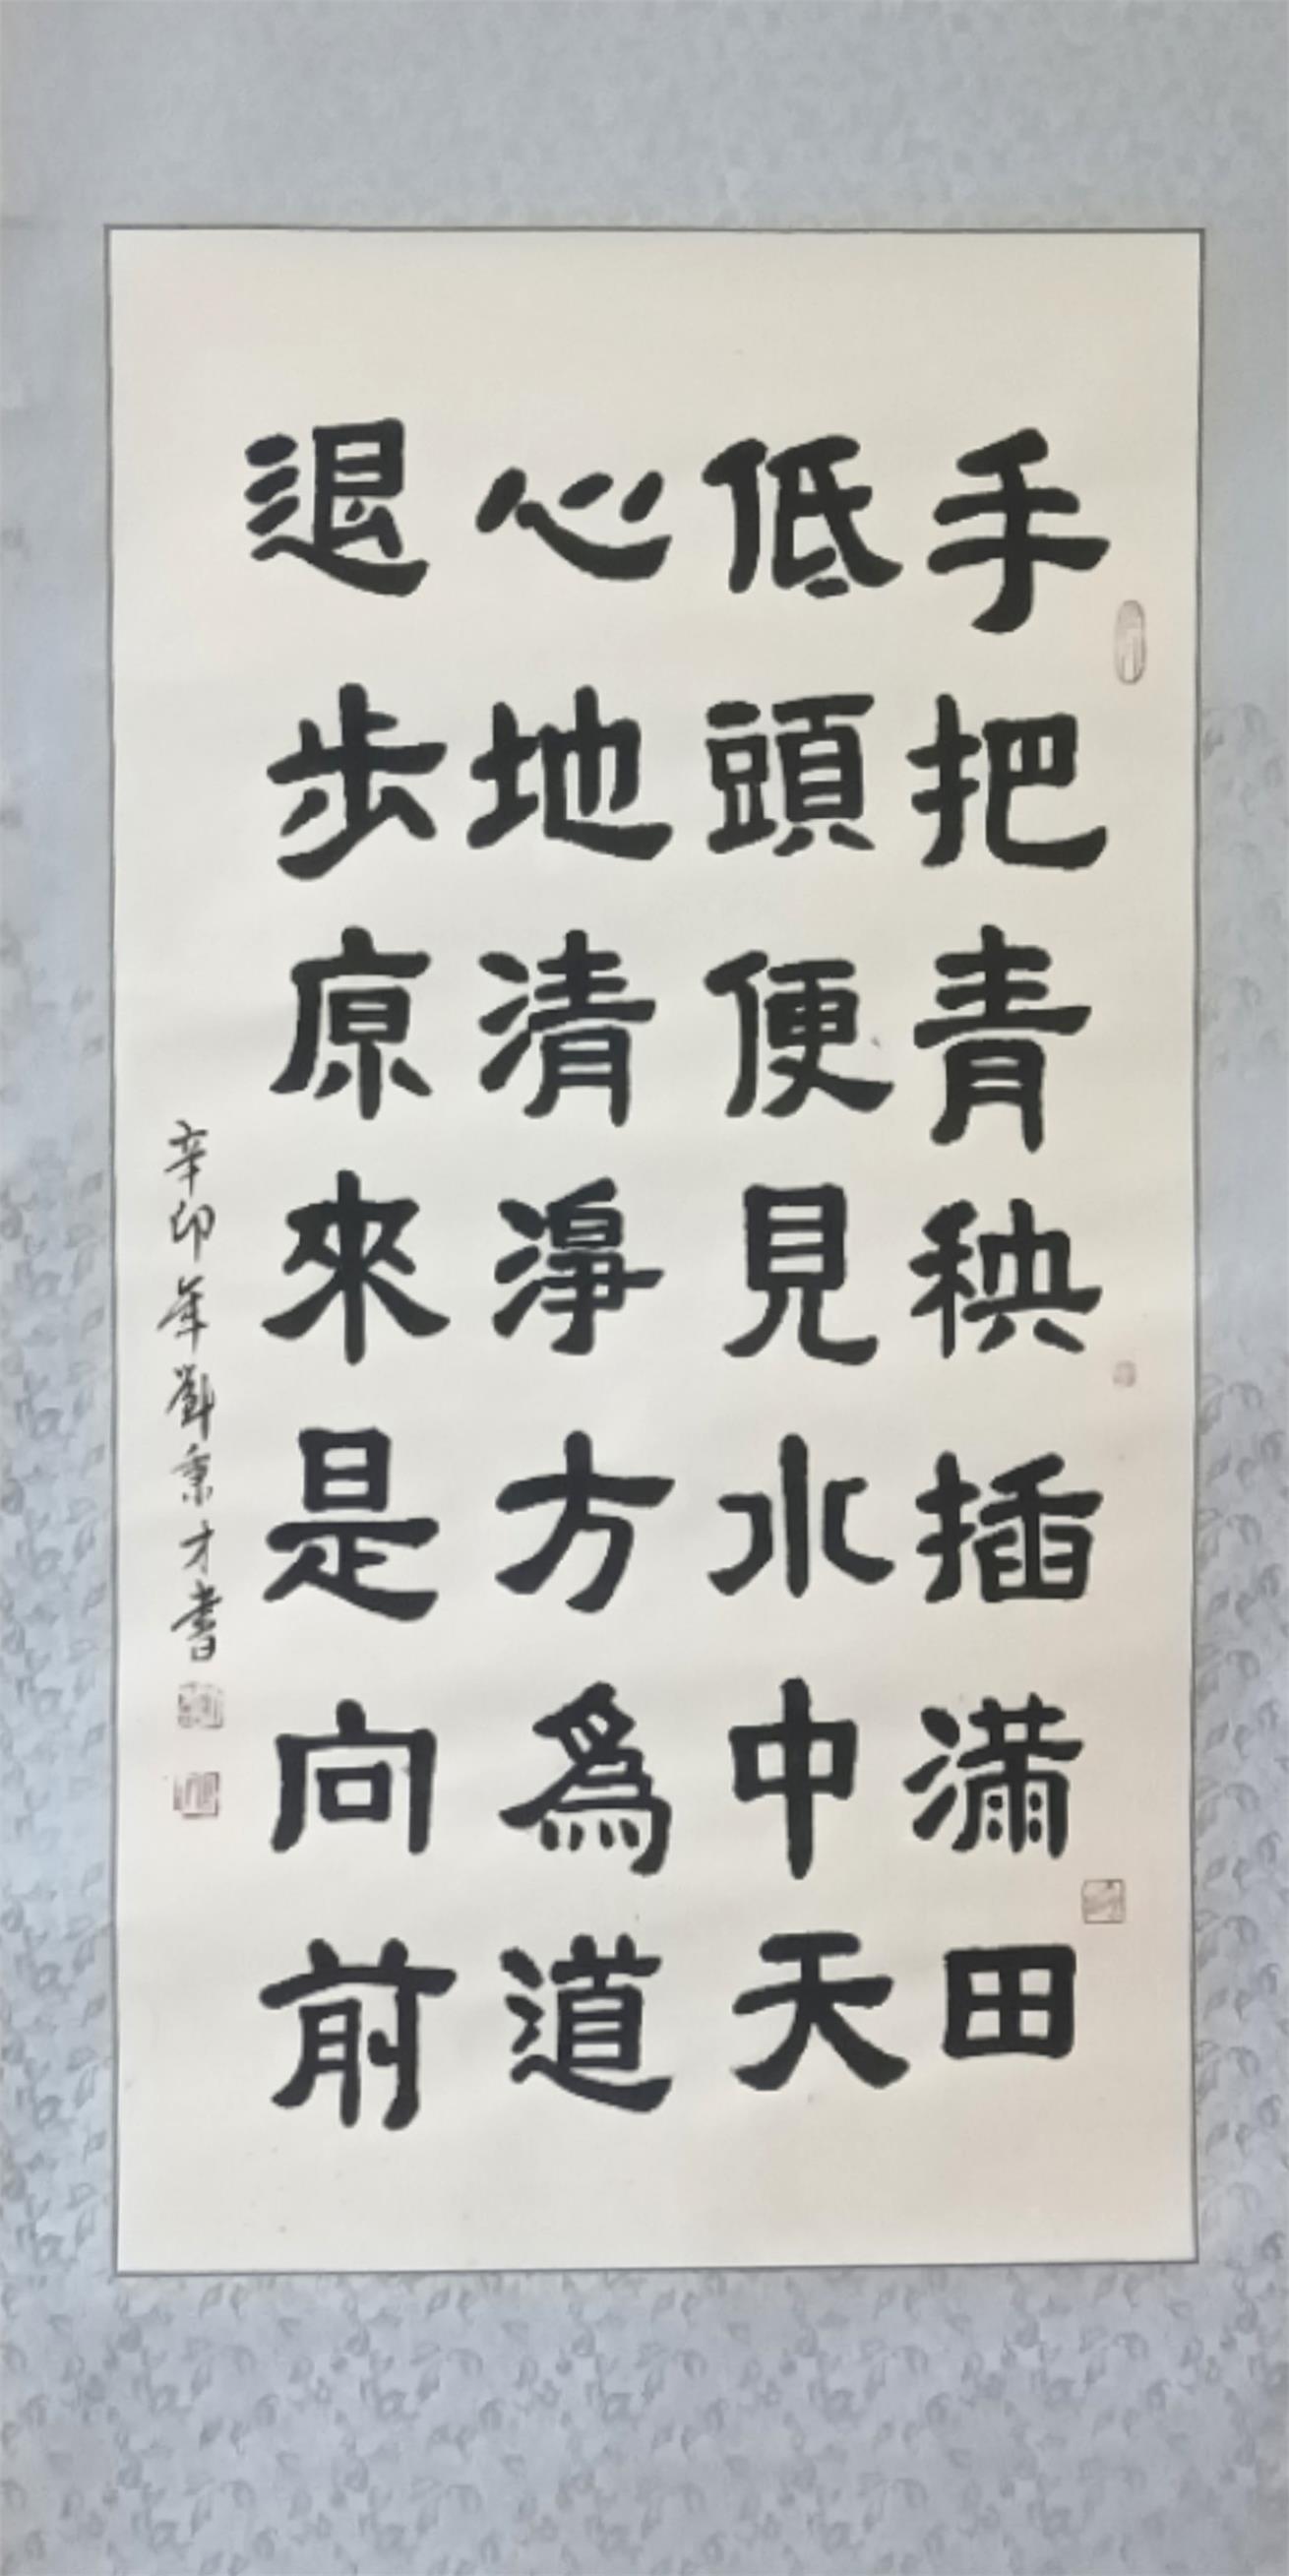 手把青秧插滿田
低頭便見水中天
心地清淨方為道
退步原來是向前
辛卯年劉秉才書